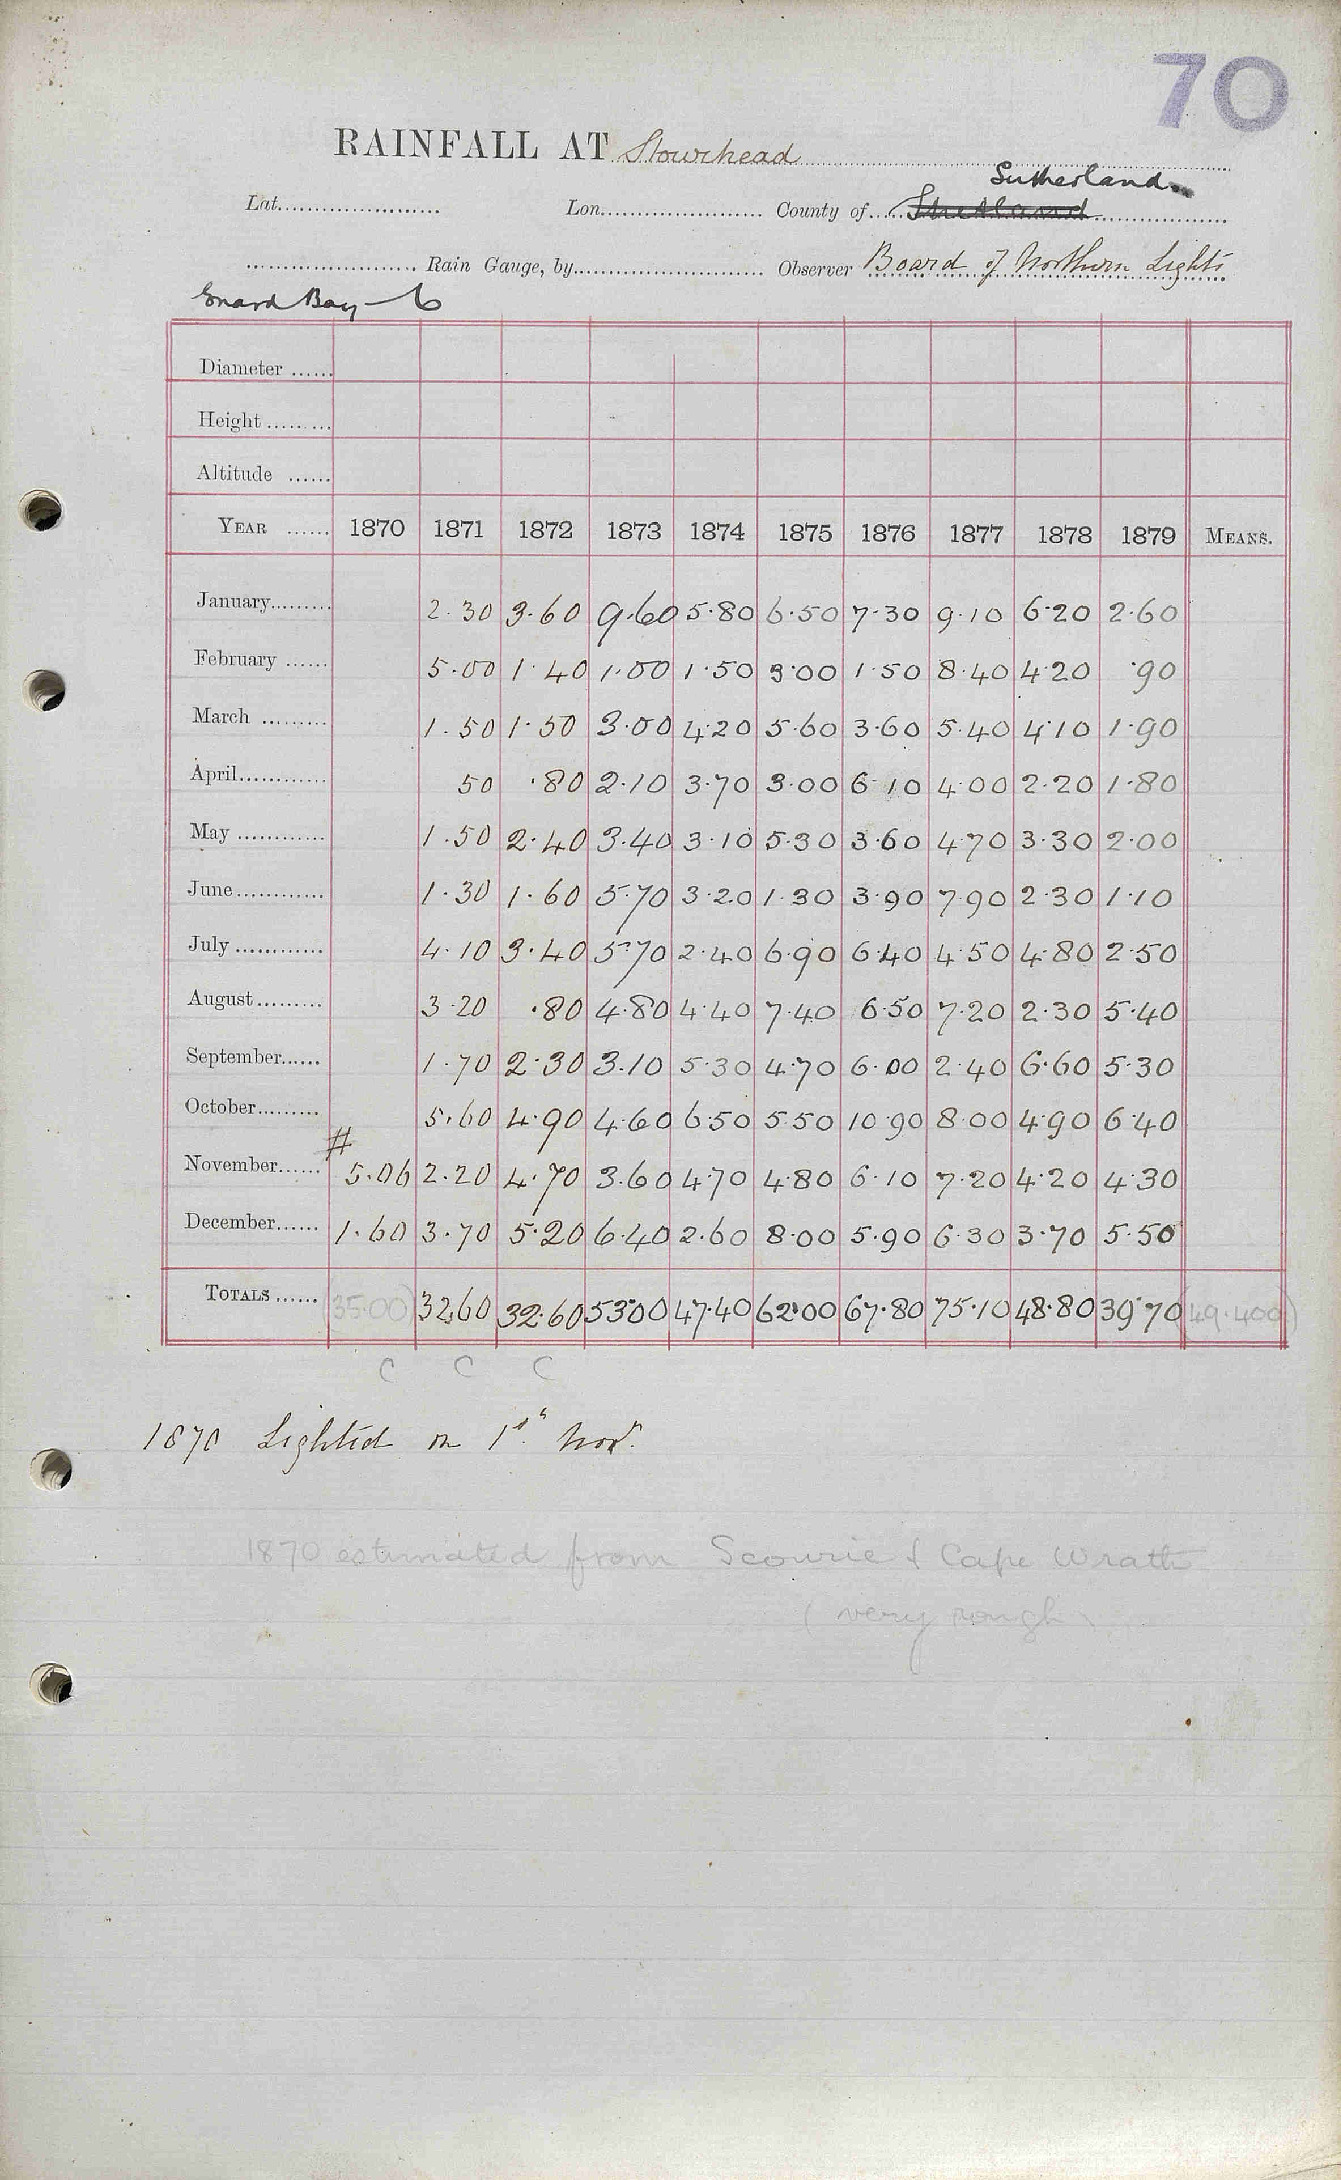 70
RAINFALL AT Stourhead
Sutherland
Lat. Lon. County of Shetland
Rain Gauge, by Observer Board of Northern Lights
Enard Bay
Diameter
Height
Altitude
YEAR 1870 1871 1872 1873 1874 1875 1876 1877 1878 1879 MEANS.
January 2.30 3.60 9.60 5.80 6.50 7.30 9.10 6.20 2.60
February 5.00 1.40 1.00 1.50 3.00 1.50 8.40 4.20 .90
March 1.50 1.50 3.00 4.20 5.60 3.60 5.40 4.10 1.90
April 50 .80 2.10 3.70 3.00 6.10 4.00 2.20 1.80
May 1.50 2.40 3.40 3.10 5.30 3.60 4.70 3.30 2.00
June 1.30 1.60 5.70 3.20 1.30 3.90 7.90 2.30 1.10
July 4.10 3.40 5.70 2.40 6.90 6.40 4.50 4.80 2.50
August 3.20 .80 4.80 4.40 7.40 6.50 7.20 2.30 5.40
September 1.70 2.30 3.10 5.30 4.70 6.00 2.40 6.60 5.30
October 5.60 4.90 4.60 6.50 5.50 10.90 8.00 4.90 6.40
#
November 5.06 2.20 4.70 3.60 4.70 4.80 6.10 7.20 4.20 4.30
December 1.60 3.70 5.20 6.40 2.60 8.00 5.90 6.30 3.70 5.50
TOTALS (35.00) 32.60 32.60 53.00 47.40 62.00 67.80 75.10 48.80 39.70 (49.400)
C C C
1870 Lighted on 1st Novr.
1870 estimated from Scourie & Cape Wrath
(very rough)